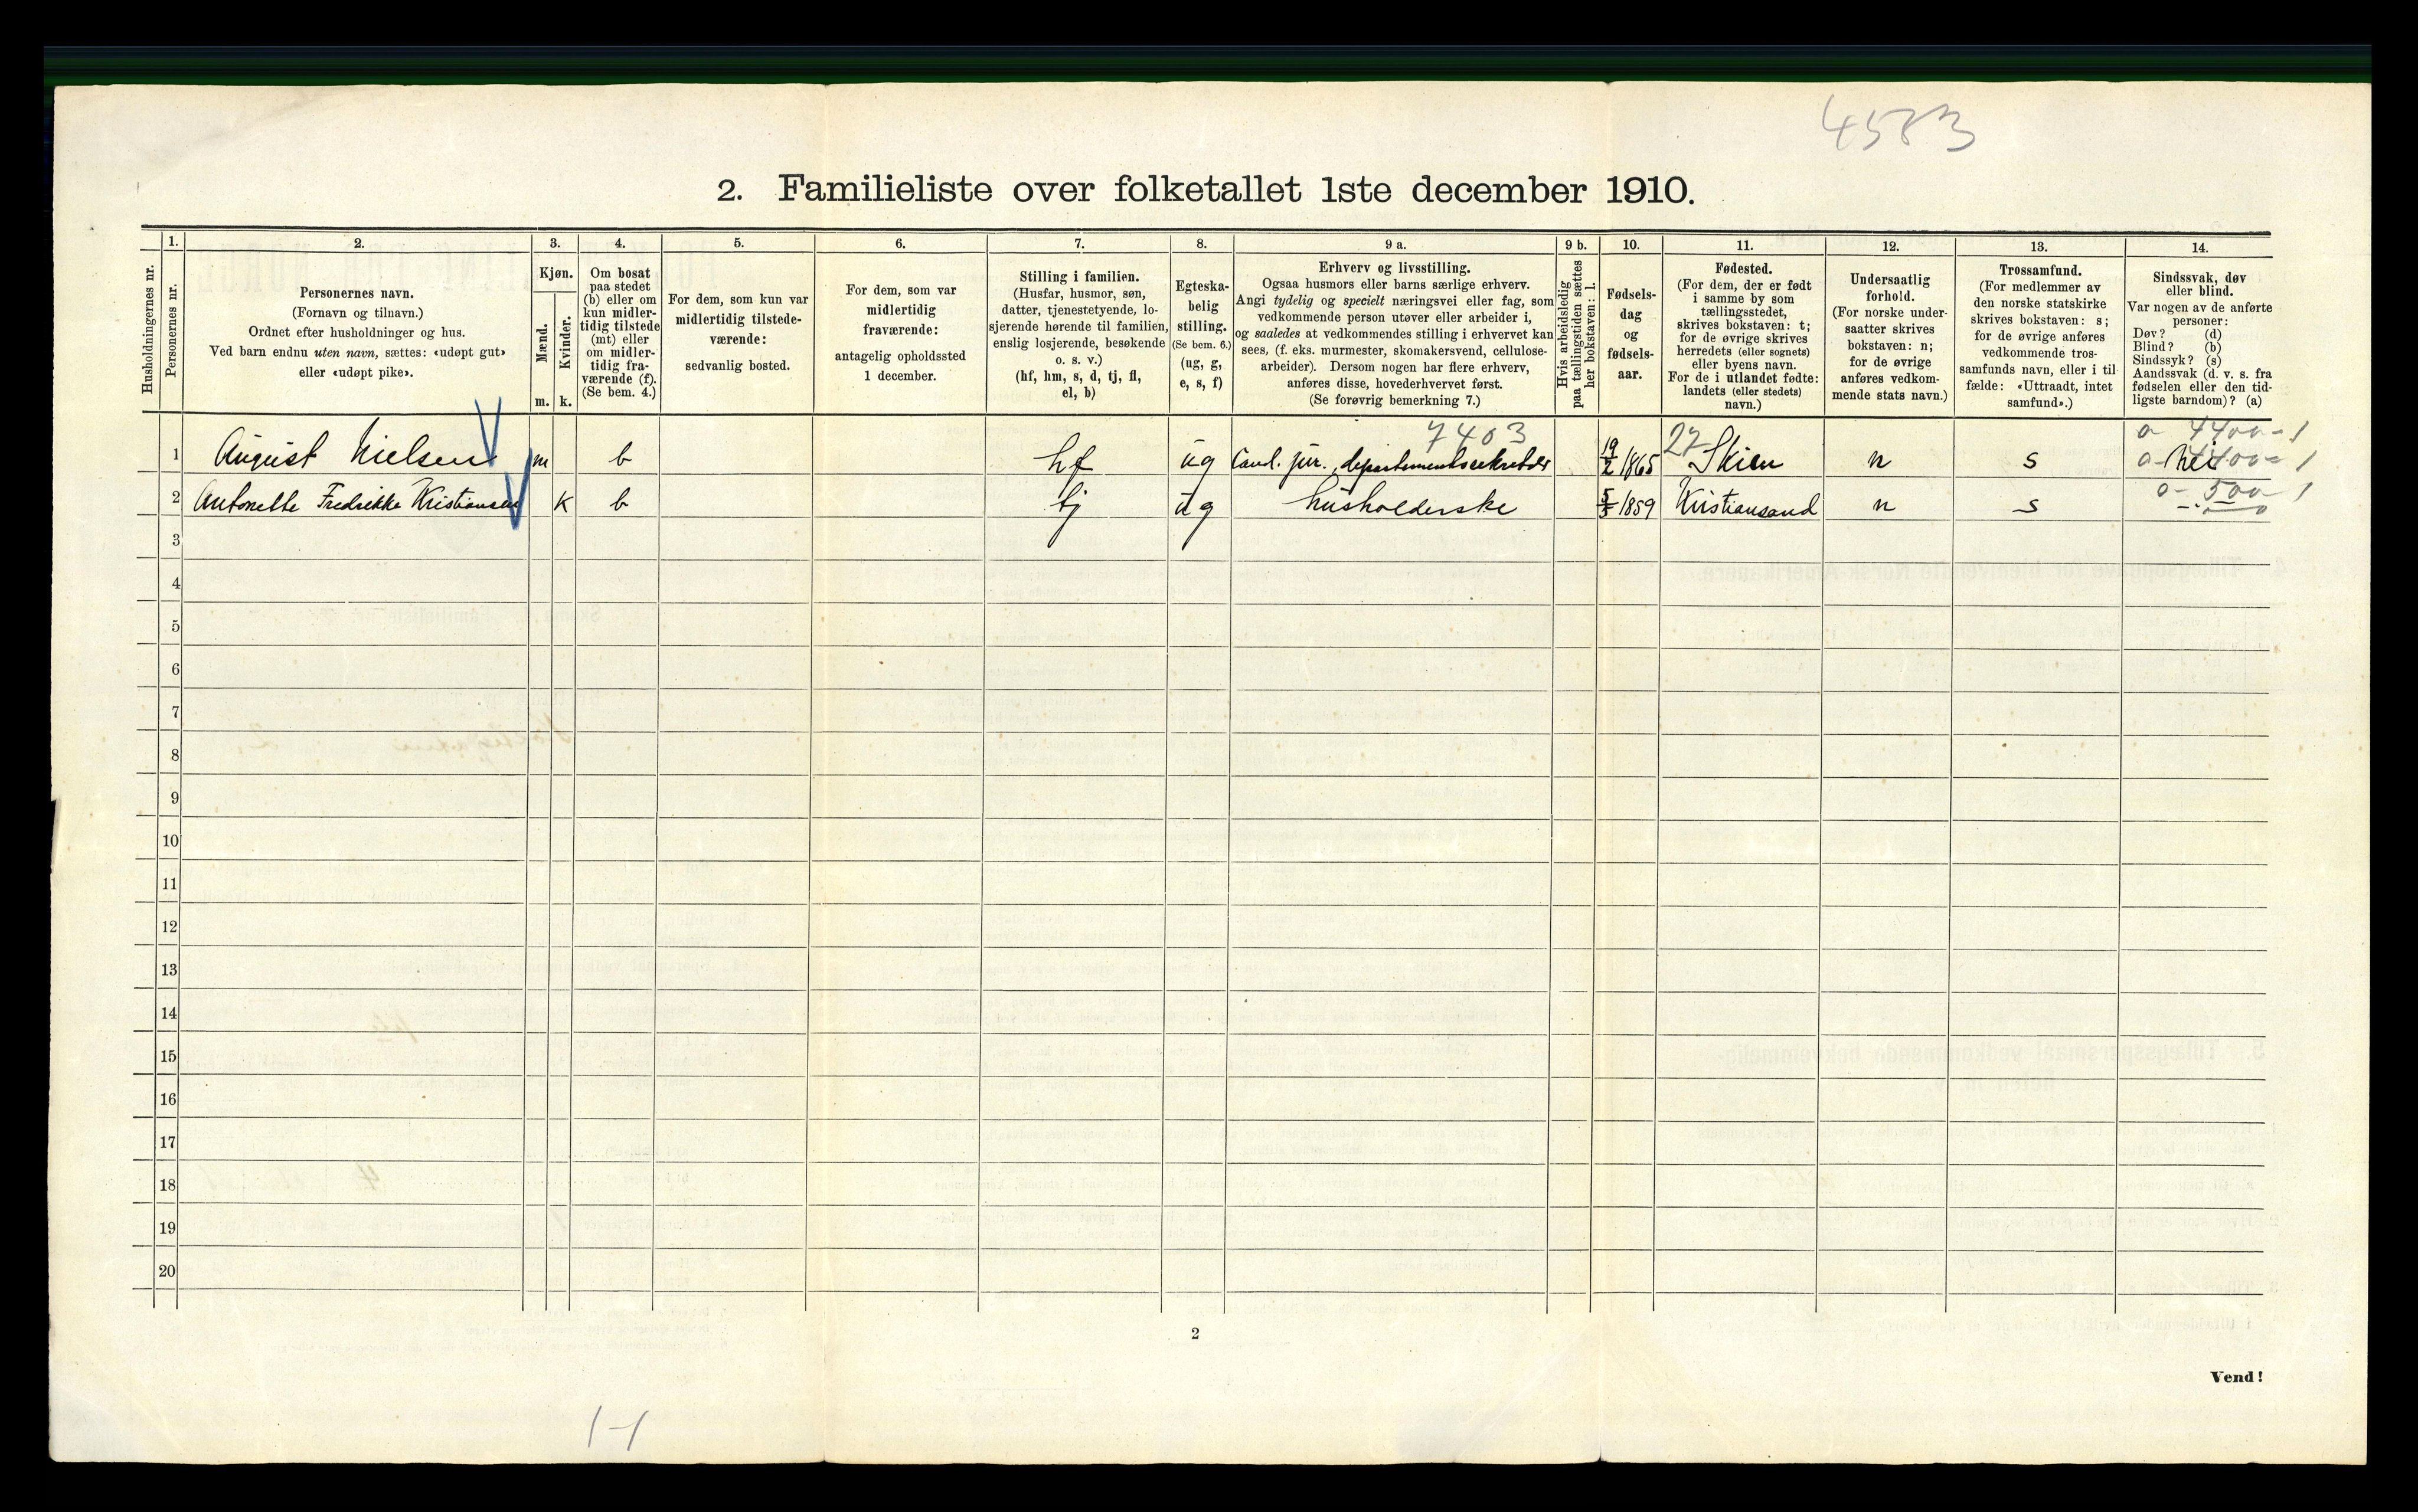 4583
2. Familieliste over folketallet 1ste december 1910.
Husholdningernes nr.
1.
Personernes nr.
2.
Personernes navn.
(Fornavn og tilnavn.)
Ordnet efter husholdninger og hus.
Ved barn endnu uten navn, sættes: «udøpt gut»
eller «udøpt pike».
3.
Kjøn.
Mænd.
Kvinder.
m. k.
4.
Om bosat
paa stedet
(b) eller om
kun midler-
tidig tilstede
(mt) eller
om midler-
tidig fra-
værende (f).
(Se bem. 4.)
5.
For dem, som kun var
midlertidig tilstede-
værende:
sedvanlig bosted.
6.
For dem, som var
midlertidig
fraværende:
antagelig opholdssted
1 december.
7.
Stilling i familien.
(Husfar, husmor, søn,
datter, tjenestetyende, lo-
sjerende hørende til familien,
enslig losjerende, besøkende
o. s. v.)
(hf, hm, s, d, tj, fl,
el, b)
8.
Egteska-
belig
stilling.
(Se bem. 6.)
(ug, g,
e, s, f)
9 a.
Erhverv og livsstilling.
Ogsaa husmors eller barns særlige erhverv.
Angi tydelig og specielt næringsvei eller fag, som
vedkommende person utøver eller arbeider i,
og saaledes at vedkommendes stilling i erhvervet kan
sees, (f. eks. murmester, skomakersvend, cellulose-
arbeider). Dersom nogen har flere erhverv,
anføres disse, hovederhvervet først.
(Se forøvrig bemerkning 7.)
9 b.
Hvis arbeidsledig
paa tællingstiden sættes
her bokstaven: l.
10.
Fødsels-
dag
og
fødsels-
aar.
11.
Fødested.
(For dem, der er født
i samme by som
tællingsstedet,
skrives bokstaven: t;
for de øvrige skrives
herredets (eller sognets)
eller byens navn.
For de i utlandet fødte:
landets (eller stedets)
navn.)
12.
Undersaatlig
forhold.
(For norske under-
saatter skrives
bokstaven: n;
for de øvrige
anføres vedkom-
mende stats navn.)
13.
Trossamfund.
(For medlemmer av
den norske statskirke
skrives bokstaven: s;
for de øvrige anføres
vedkommende tros-
samfunds navn, eller i til-
fælde: «Uttraadt, intet
samfund».)
14.
Sindssvak, døv
eller blind.
Var nogen av de anførte
personer:
Døv? (d)
Blind? (b)
Sindssyk? (s)
Aandssvak (d. v. s. fra
fødselen eller den tid-
ligste barndom)? (a)
7403 27 0 4400-1
1 August Nielsen m b hf ug Cand. jur., departementssekretær 19/2 1865 Skien n s nei 0-4400-1
2 Antonette Fredrikke Kristiansen k b tj ug husholderske 5/5 1859 Kristiansand n s 0-500-1
3
4
5
6
7
8
9
10
11
12
13
14
15
16
17
18
19
20
2
Vend!
1-1